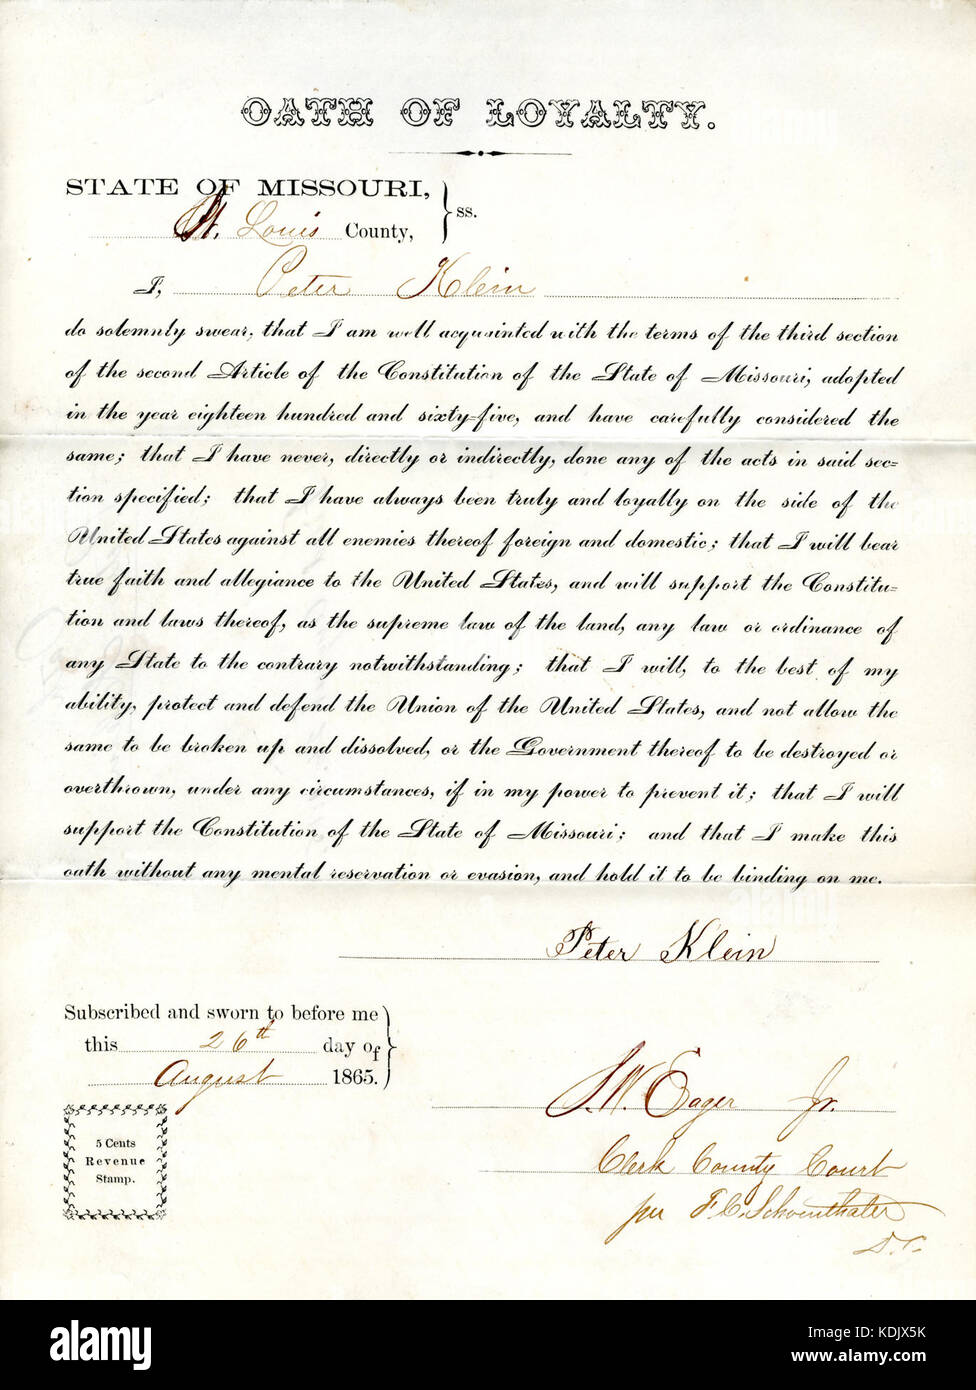 OATH OF LOYALTY.
STATE OF MISSOURI,
St. Louis County, } ss.
I, Peter Klein
do solemnly swear, that I am well acquainted with the terms of the third section
of the second Article of the Constitution of the State of Missouri, adopted
in the year eighteen hundred and sixty-five, and have carefully considered the
same; that I have never, directly or indirectly, done any of the acts in said sec-
tion specified; that I have always been truly and loyally on the side of the
United States against all enemies thereof foreign and domestic; that I will bear
true faith and allegiance to the United States, and will support the Constitu-
tion and laws thereof, as the supreme law of the land, any law or ordinance of
any State to the contrary notwithstanding; that I will, to the best of my
ability, protect and defend the Union of the United States, and not allow the
same to be broken up and dissolved, or the Government thereof to be destroyed or
overthrown, under any circumstances, if in my power to prevent it; that I will
support the Constitution of the State of Missouri; and that I make this
oath without any mental reservation or evasion, and hold it to be binding on me.
Peter Klein
Subscribed and sworn to before me
this 26th day of
August 1865.
S.W. Eager Jr.
Clerk County Court
per F.C. Schoenthaler
D.C.
5 Cents
Revenue
Stamp.
alamy
Image ID: KDJX5K
www.alamy.com